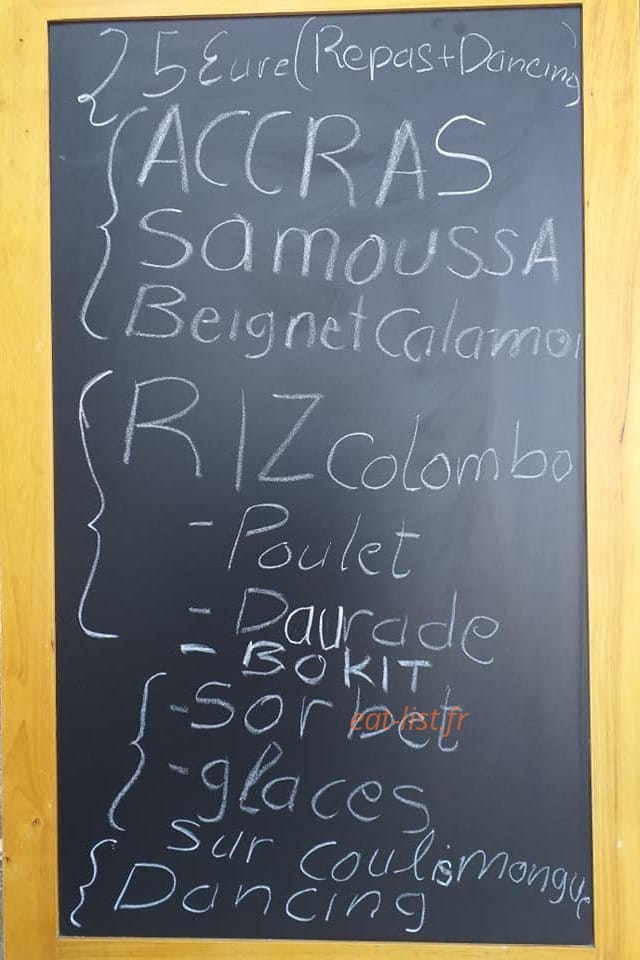 25 Eure (Repas+Dancing)
ACCRAS
Samoussa
Beignet Calamoi
RIZ Colombo
- Poulet
- Daurade
- BOKIT
- Sorbet
eat-list.fr
- glaces
sur coulis mongue
Dancing